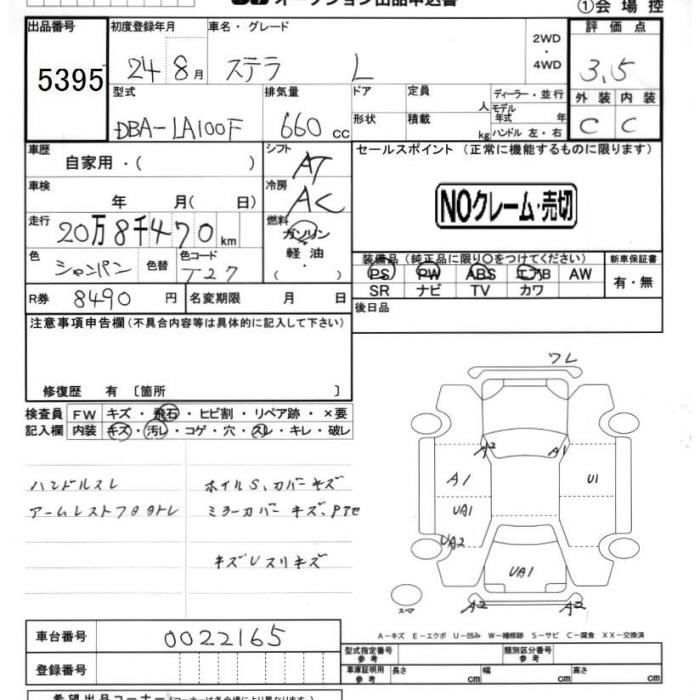 オークション出品申込書
①会場控
出品番号 初度登録年月 車名・グレード 2WD・4WD 評価点
5395 24年8月 ステラ L 3.5
型式 排気量 ドア 定員 人 ディーラー・並行 外装 内装
DBA-LA100F 660cc 形状 積載 kg モデル年式 年 ハンドル 左・右 C C
車歴 自家用・( ) シフト AT セールスポイント (正常に機能するものに限ります)
車検 年 月( 日) 冷房 AC
NOクレーム・売切
走行 20万8千470km 燃料 ガソリン・軽油・( )
色 シャンパン 色替 色コード T27
装備品 (純正品に限り○をつけてください) 新車保証書
PS PW ABS エアB AW 有・無
SR ナビ TV カワ
R券 8490円 名変期限 月 日 後日品
注意事項申告欄 (不具合内容等は具体的に記入して下さい)
修復歴 有 〔箇所 〕
検査員 FW キズ・飛石・ヒビ割・リペア跡・×要
記入欄 内装 キズ・汚レ・コゲ・穴・スレ・キレ・破レ
ワレ
A2 A1
A1 U1
UA1
UA2
UA1
スペア
A2 A2
ハンドルスレ ホイルS、カバーキズ
ミラーカバーキズ、
キズUスリキズ
A-キズ E-エクボ U-凹み W-補修跡 S-サビ C-腐食 XX-交換済
車台番号 0022165
登録番号
型式指定番号 参考 類別区分番号 参考
車庫証明用 参考 長さ cm 幅 cm 高さ cm
希望出品コーナー